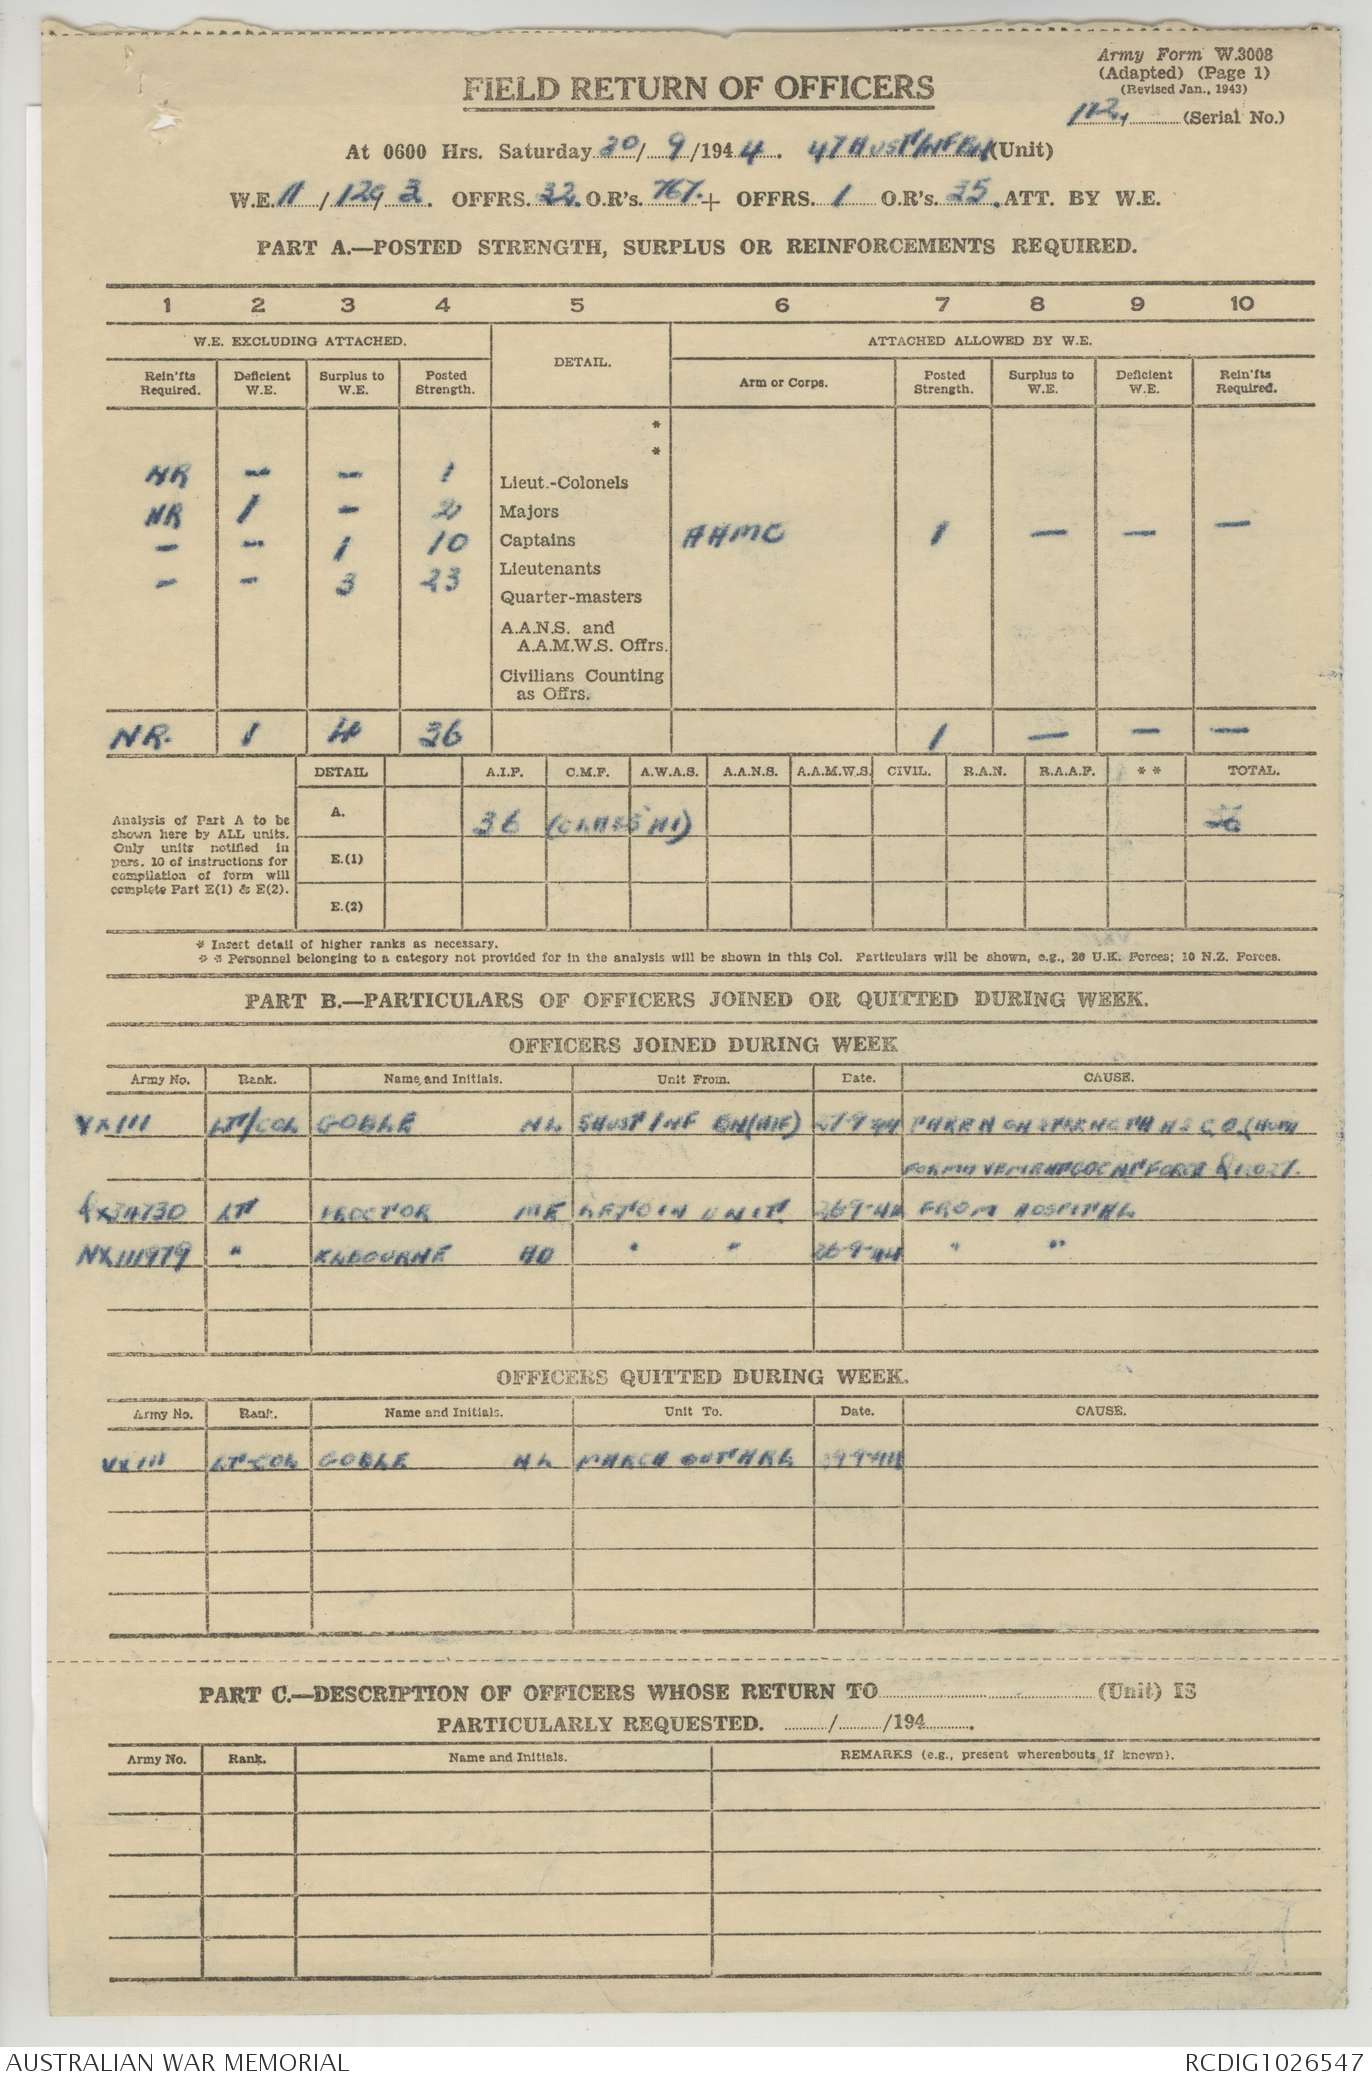 Army Form W.3008
(Adapted) (Page 1)
(Revised Jan., 1943)
FIELD RETURN OF OFFICERS
112, (Serial No.)
At 0600 Hrs. Saturday 30/ 9 /194 4. 47 AUST INF BN (Unit)
W.E. 11 / 129/ 3. OFFRS. 32. O.R's. 767. + OFFRS. 1 O.R's. 35. ATT. BY W.E.
PART A.—POSTED STRENGTH, SURPLUS OR REINFORCEMENTS REQUIRED.
1 2 3 4 5 6 7 8 9 10
W.E. EXCLUDING ATTACHED. DETAIL. ATTACHED ALLOWED BY W.E.
Rein'fts Required. Deficient W.E. Surplus to W.E. Posted Strength. Arm or Corps. Posted Strength. Surplus to W.E. Deficient W.E. Rein'fts Required.
*
*
NR — — 1 Lieut.-Colonels
NR 1 — 2 Majors
— — 1 10 Captains AAMC 1 — — —
— — 3 23 Lieutenants
Quarter-masters
A.A.N.S. and
A.A.M.W.S. Offrs.
Civilians Counting
as Offrs.
NR. 1 4 36 1 — — —
DETAIL A.I.F. C.M.F. A.W.A.S. A.A.N.S. A.A.M.W.S. CIVIL. R.A.N. R.A.A.F. * * TOTAL.
Analysis of Part A to be
shown here by ALL units.
Only units notified in
pars. 10 of instructions for
compilation of form will
complete Part E(1) & E(2).
A. 36 (CLASS A1) 36
E.(1)
E.(2)
* Insert detail of higher ranks as necessary.
* * Personnel belonging to a category not provided for in the analysis will be shown in this Col. Particulars will be shown, e.g., 20 U.K. Forces; 10 N.Z. Forces.
PART B.—PARTICULARS OF OFFICERS JOINED OR QUITTED DURING WEEK.
OFFICERS JOINED DURING WEEK
Army No. Rank. Name and Initials. Unit From. Date. CAUSE.
VX111 LT/COL GOBLE NL AUST INF BN (AIF) 27-9-44 TAKEN ON STRENGTH AS C.O. (AUTH
FORCE
QX34730 LT PROCTOR ME DETAIN UNIT 26-9-44 FROM HOSPITAL
NX111979 " KILBOURNE AD " " 26-9-44 " "
OFFICERS QUITTED DURING WEEK.
Army No. Rank. Name and Initials. Unit To. Date. CAUSE.
VX111 LT-COL GOBLE NL MARCH OUT 9-44
PART C.—DESCRIPTION OF OFFICERS WHOSE RETURN TO (Unit) IS
PARTICULARLY REQUESTED. / /194 .
Army No. Rank. Name and Initials. REMARKS (e.g., present whereabouts if known).
AUSTRALIAN WAR MEMORIAL RCDIG1026547